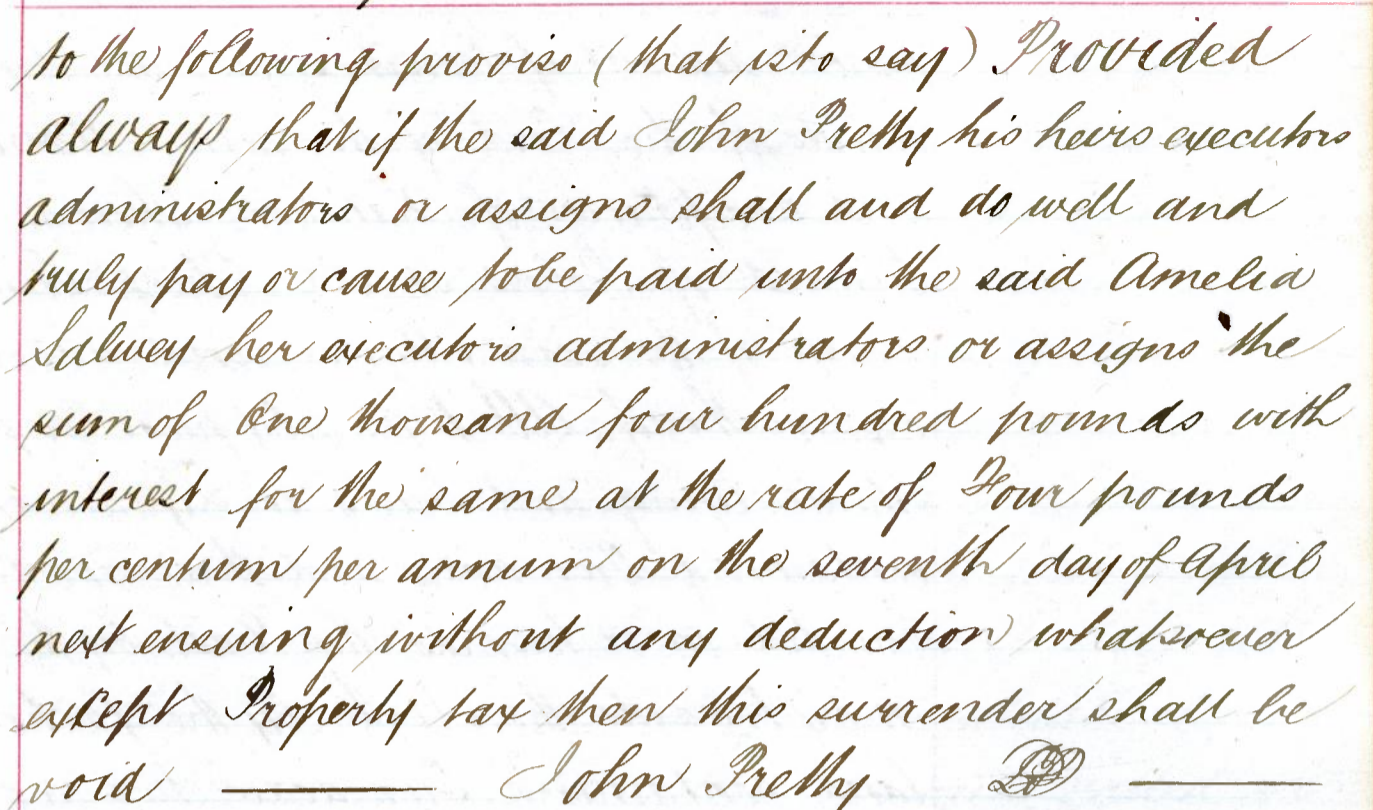 to the following proviso (that is to say) Provided
always that if the said John Pretty his heirs executors
administrators or assigns shall and do well and
truly pay or cause to be paid unto the said Amelia
Salwey her executors administrators or assigns the
sum of One thousand four hundred pounds with
interest for the same at the rate of Four pounds
per centum per annum on the seventh day of April
next ensuing without any deduction whatsoever
except Property tax then this surrender shall be
void John Pretty